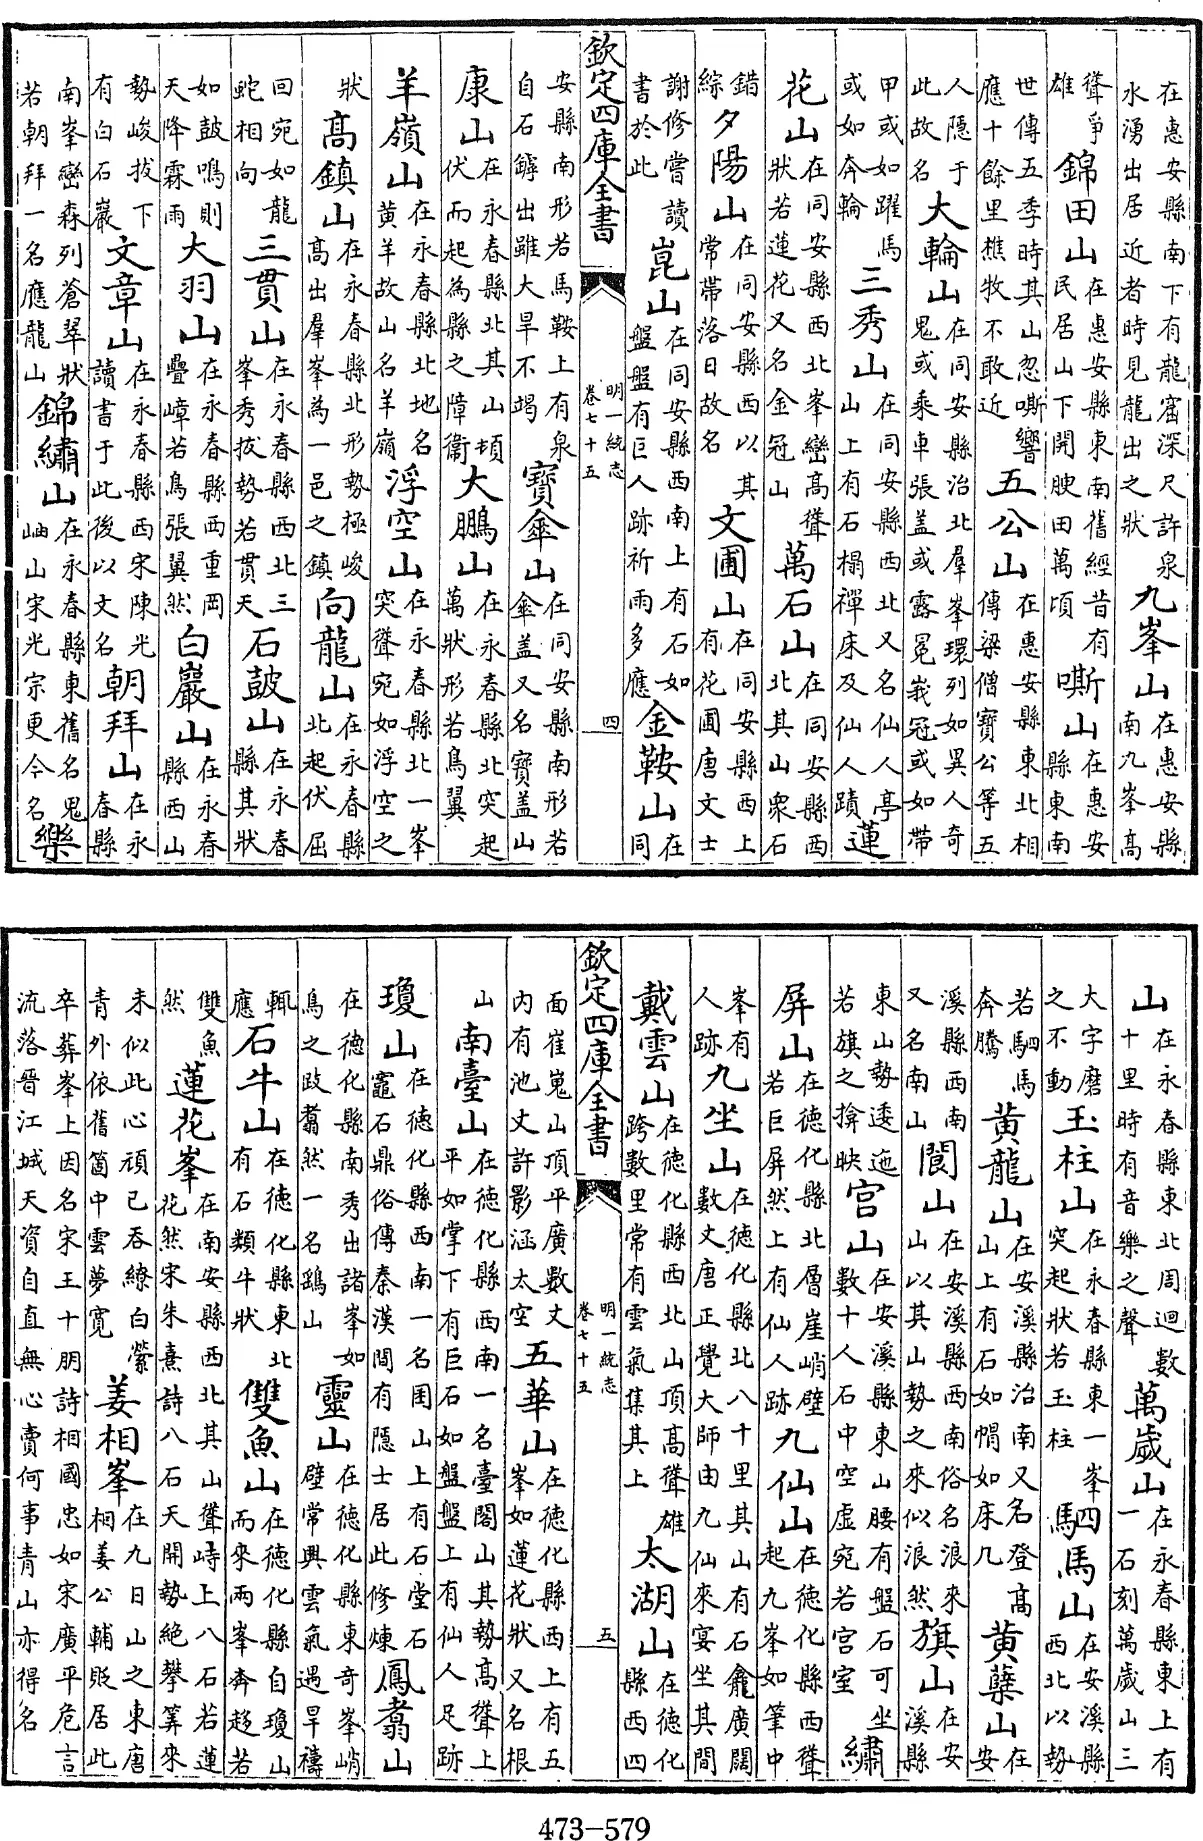 在惠安縣南下有龍窟深尺許泉水湧出居近者時見龍出之狀九峯山在惠安縣南九峯高
聳爭雄錦田山在惠安縣東南舊經昔有民居山下開腴田萬頃嘶山在惠安縣東南
世傳五季時其山忽嘶響應十餘里樵牧不敢近五公山在惠安縣東北相傳梁僧寶公等五
人隱于此故名大輪山在同安縣治北羣峯環列如異人奇鬼或乘車張盖或露冕峩冠或如帶
甲或如躍馬或如奔輪三秀山在同安縣西北又名仙人亭山上有石榻禪床及仙人蹟蓮
花山在同安縣西北峯巒高聳狀若蓮花又名金冠山萬石山在同安縣西北其山衆石
錯綜夕陽山在同安縣西以其常帶落日故名文圃山在同安縣西上有花圃唐文士
謝修嘗讀書於此崑山在同安縣西南上有石如盤盤有巨人跡祈雨多應金鞍山在同
欽定四庫全書 明一統志卷七十五 四
安縣南形若馬鞍上有泉自石罅出雖大旱不竭寶傘山在同安縣南形若傘盖又名寶盖山
康山在永春縣北其山頓伏而起為縣之障衛大鵬山在永春縣北突起萬狀形若鳥翼
羊嶺山在永春縣北地名黄羊故山名羊嶺浮空山在永春縣北一峯突聳宛如浮空之
狀高鎮山在永春縣北形勢極峻高出羣峯為一邑之鎮向龍山在永春縣北起伏屈
回宛如龍蛇相向三貫山在永春縣西北三峯秀拔勢若貫天石鼓山在永春縣其狀
如鼓鳴則天降霖雨大羽山在永春縣西重岡疊嶂若鳥張翼然白巖山在永春縣西山
勢峻拔下有白石巖文章山在永春縣西宋陳光讀書于此後以文名朝拜山在永春縣
南峯巒森列蒼翠狀若朝拜一名應龍山錦繡山在永春縣東舊名鬼岫山宋光宗更今名樂
山在永春縣東北周迴數十里時有音樂之聲萬歲山在永春縣東上有一石刻萬歲山三
大字磨之不動玉柱山在永春縣東一峯突起狀若玉柱駟馬山在安溪縣西北以勢
若駟馬奔騰黄龍山在安溪縣治南又名登高山上有石如帽如床几黄蘗山在安
溪縣西南又名南山閬山在安溪縣西南俗名浪來山以其山勢之來似浪然旗山在安溪縣
東山勢逶迤若旗之揜映宫山在安溪縣東山腰有盤石可坐數十人石中空虚宛若宫室繡
屏山在徳化縣北層崖峭壁若巨屏然上有仙人跡九仙山在徳化縣西聳起九峯如筆中
峯有人跡九坐山在徳化縣北八十里其山有石龕廣闊數丈唐正覺大師由九仙來宴坐其間
戴雲山在徳化縣西北山頂高聳雄跨數里常有雲氣集其上太湖山在徳化縣西四
欽定四庫全書 明一統志卷七十五 五
面崔嵬山頂平廣數丈内有池丈許影涵太空五華山在徳化縣西上有五峯如蓮花狀又名根
山南臺山在徳化縣西南一名臺閣山其勢高聳上平如掌下有巨石如盤盤上有仙人足跡
瓊山在徳化縣西南一名囷山上有石堂石竈石鼎俗傳秦漢間有隱士居此修煉鳳翥山
在徳化縣南秀出諸峯如鳥之跂翥然一名鷄山靈山在徳化縣東奇峯峭壁常興雲氣遇旱禱
輒應石牛山在徳化縣東北有石類牛狀雙魚山在徳化縣自瓊山而來兩峯奔趨若
雙魚然蓮花峯在南安縣西北其山聳峙上八石若蓮花然宋朱熹詩八石天開勢絶攀筭來
未似此心頑已吞繚白縈青外依舊箇中雲夢寛姜相峯在九日山之東唐相姜公輔貶居此
卒葬峯上因名宋王十朋詩相國忠如宋廣平危言流落晉江城天資自直無心賣何事青山亦得名
473-579